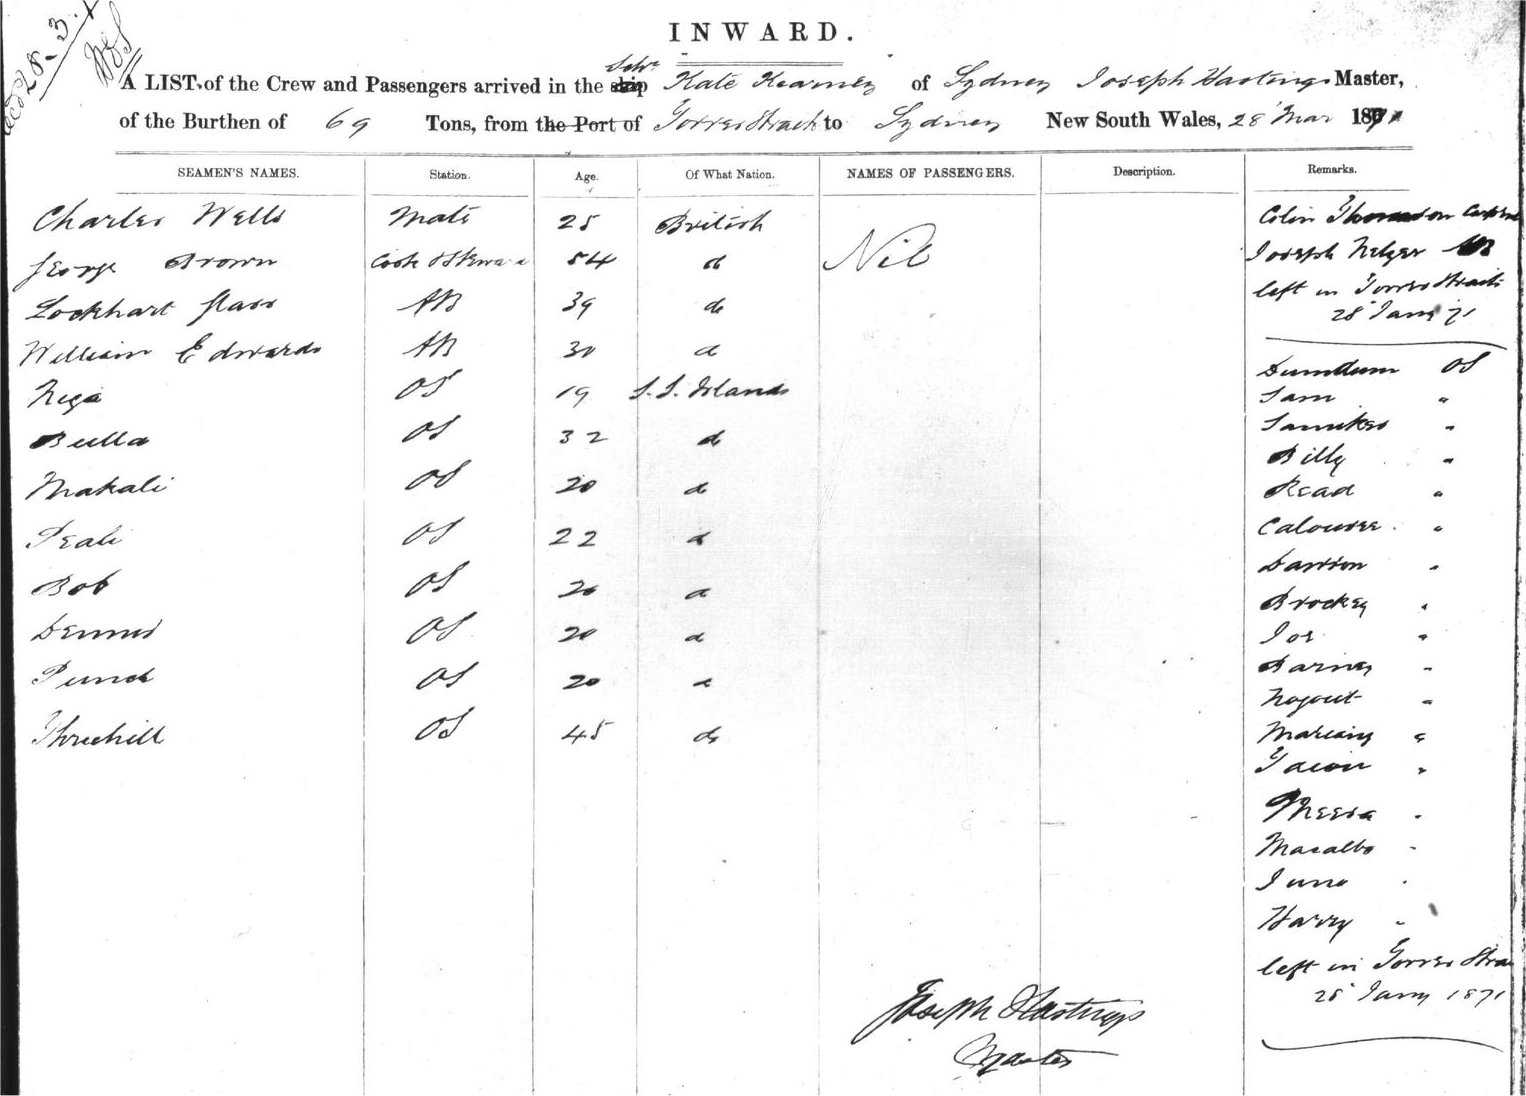 28-3-71
INWARD.
A LIST of the Crew and Passengers arrived in the ship Schr Kate Kearney of Sydney Joseph Hastings Master,
of the Burthen of 69 Tons, from the Port of Torres Straits to Sydney New South Wales, 28 Mar 1871
SEAMEN'S NAMES. Station. Age. Of What Nation. NAMES OF PASSENGERS. Description. Remarks.
Charles Wells Mate 25 British Nil
George Brown Cook & Steward 54 do
Lockhart 39 do
William Edwards AB 30 do
OS 19 S.S. Islands
Bulla OS 32 do
Makali OS 20 do
Peali OS 22 do
Bob OS 20 do
Dennis OS 20 do
Punch OS 20 do
Threehill OS 45 do
Colin Thomson
Joseph AB
left in Torres Straits
28 Jany 71
Dumdum OS
Sam "
"
Billy "
Read "
"
"
Brockey "
Joe "
Barney "
"
"
"
"
Macalbo "
Juno "
Harry "
left in Torres Strai
28 Jany 1871
Joseph Hastings
Master